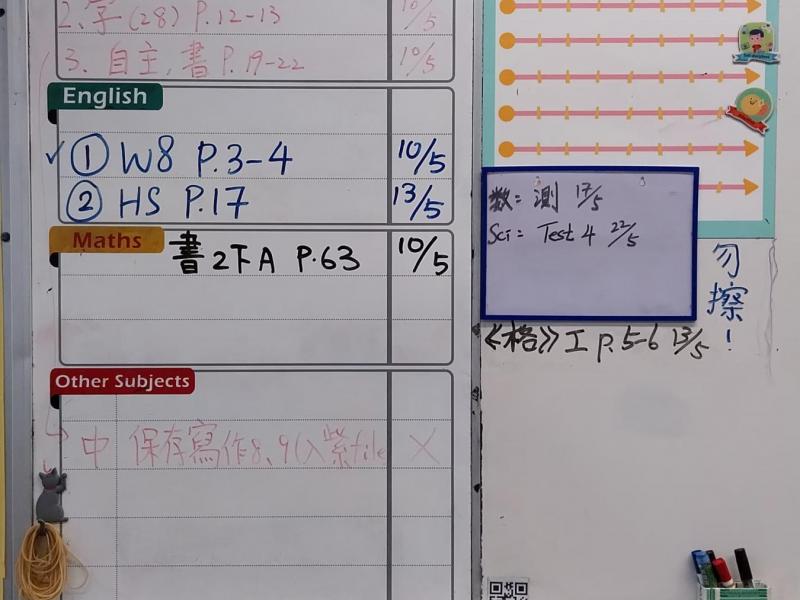 2. 字(28) P.12-13 10/5
3. 自主.書 P.19-22 10/5
English
✓ ① W8 P.3-4 10/5
② HS P.17 13/5
Maths
書 2下A P.63 10/5
Other Subjects
中 保存寫作8、9(入紫file X
数= 測 17/5
Sci= Test 4 22/5
勿擦!
《格》工 p.5-6 13/5